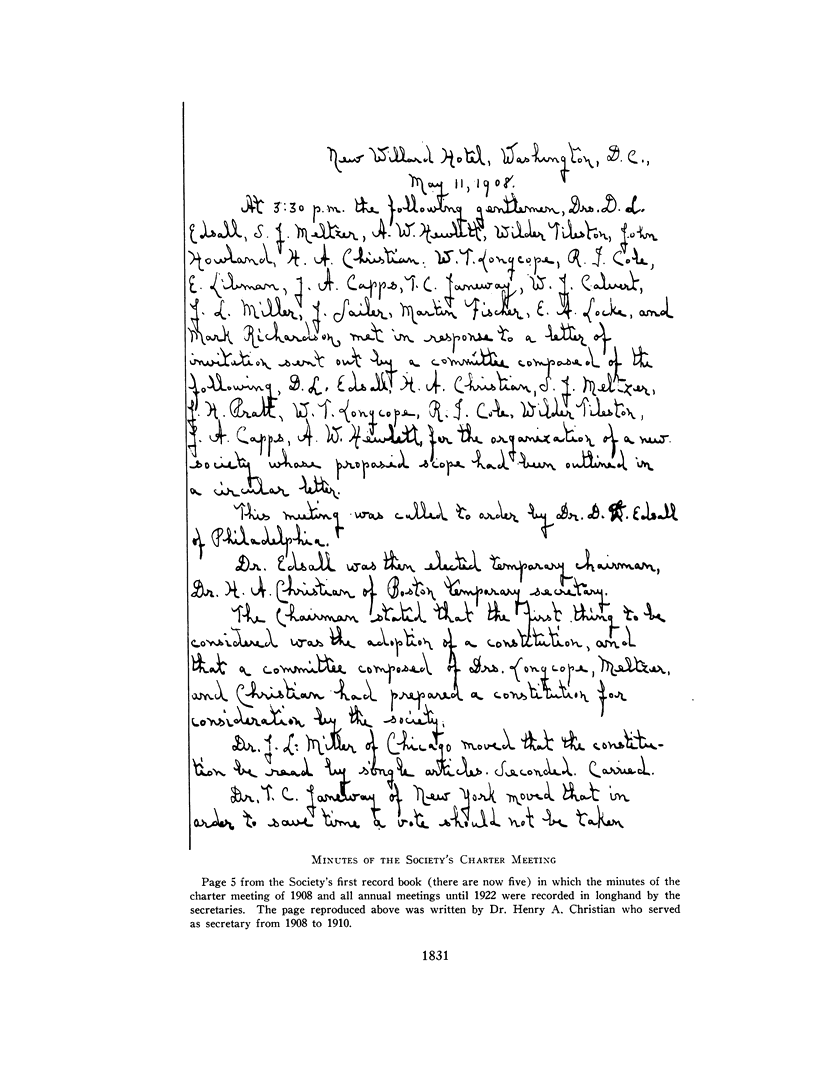 New Willard Hotel, Washington, D.C.,
May 11, 1908.
At 3:30 p.m. the following gentlemen, Drs. D. L.
Edsall, S. J. Meltzer, A. W. Hewlett, Wilder Tileston, John
Howland, H. A. Christian, W. T. Longcope, R. I. Cole,
E. Libman, J. A. Capps, T. C. Janeway, W. J. Calvert,
J. L. Miller, J. Sailer, Martin Fischer, E. A. Locke, and
Mark Richardson, met in response to a letter of
invitation sent out by a committee composed of the
following, D. L. Edsall, H. A. Christian, S. J. Meltzer,
J. H. Pratt, W. T. Longcope, R. I. Cole, Wilder Tileston,
J. A. Capps, A. W. Hewlett, for the organization of a new
society whose proposed scope had been outlined in
a circular letter.
This meeting was called to order by Dr. D. L. Edsall
of Philadelphia.
Dr. Edsall was then elected temporary chairman,
Dr. H. A. Christian of Boston temporary secretary.
The Chairman stated that the first thing to be
considered was the adoption of a constitution, and
that a committee composed of Drs. Longcope, Meltzer,
and Christian had prepared a constitution for
consideration by the society.
Dr. J. L. Miller of Chicago moved that the constitu-
tion be read by single articles. Seconded. Carried.
Dr. T. C. Janeway of New York moved that in
order to save time a vote should not be taken
MINUTES OF THE SOCIETY'S CHARTER MEETING
Page 5 from the Society's first record book (there are now five) in which the minutes of the
charter meeting of 1908 and all annual meetings until 1922 were recorded in longhand by the
secretaries. The page reproduced above was written by Dr. Henry A. Christian who served
as secretary from 1908 to 1910.
1831